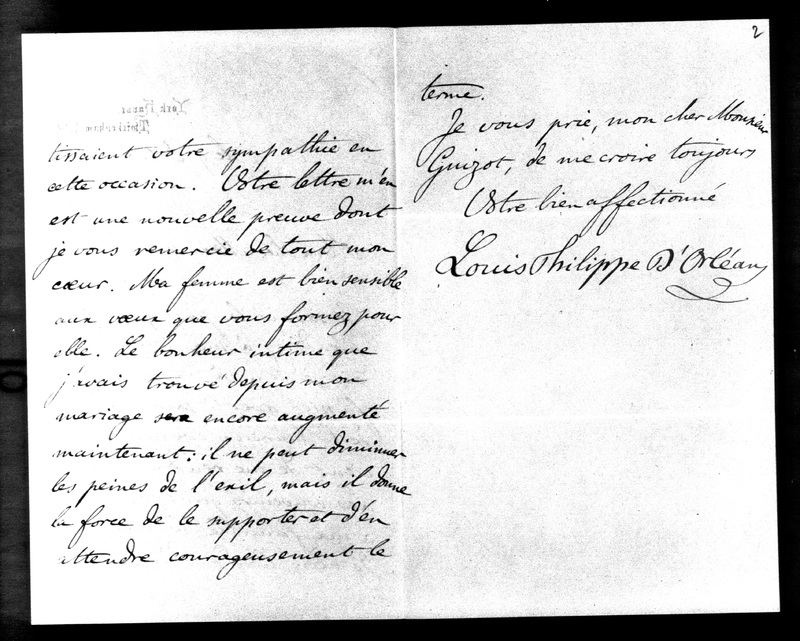 2
York House
Twickenham
tissaient votre sympathie en
cette occasion. Votre lettre m'en
est une nouvelle preuve dont
je vous remercie de tout mon
cœur. Ma femme est bien sensible
aux vœux que vous formez pour
elle. Le bonheur intime que
j'avais trouvé depuis mon
mariage sera encore augmenté
maintenant: il ne peut diminuer
les peines de l'exil, mais il donne
la force de le supporter et d'en
attendre courageusement le
terme.
Je vous prie, mon cher Monsieur
Guizot, de me croire toujours
Votre bien affectionné
Louis Philippe D'Orléans